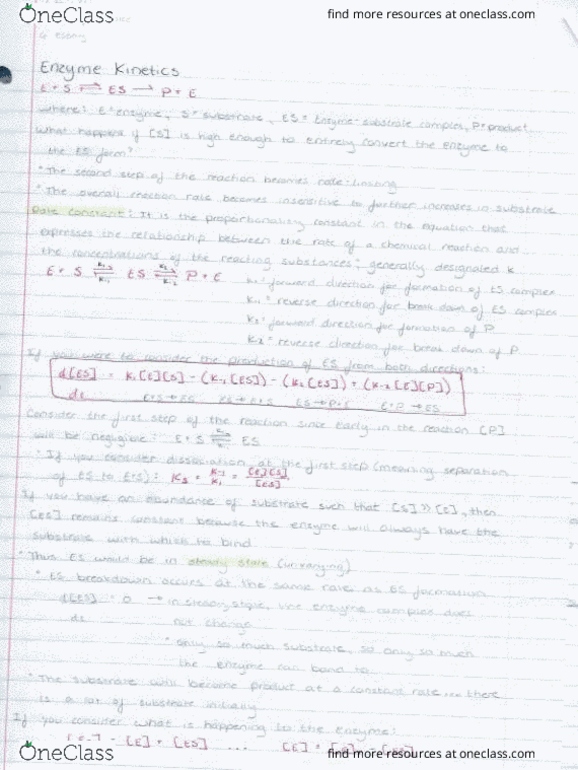 OneClass find more resources at oneclass.com
Enzyme Kinetics
E + S ⇌ ES → P + E
where: E = enzyme, S = substrate, ES = Enzyme-substrate complex, P = product
What happens if [S] is high enough to entirely convert the enzyme to
the ES form?
• The second step of the reaction becomes rate-limiting
• The overall reaction rate becomes insensitive to further increases in substrate
Rate constant: It is the proportionality constant in the equation that
expresses the relationship between the rate of a chemical reaction and
the concentrations of the reacting substances; generally designated k
E + S ⇌ ES ⇌ P + E k₁ = forward direction for formation of ES complex
k₋₁ = reverse direction for break down of ES complex
k₂ = forward direction for formation of P
k₋₂ = reverse direction for break down of P
If you were to consider the production of ES from both directions:
d[ES] = k₁[E][S] - (k₋₁[ES]) - (k₂[ES]) + (k₋₂[E][P])
dt E+S → ES ES → E+S ES → P+E E+P → ES
Consider the first step of the reaction since early in the reaction [P]
will be negligible: E + S ⇌ ES
• If you consider dissociation at the first step (meaning separation
of ES to E+S): Ks = k₋₁/k₁ = [E][S]/[ES]
If you have an abundance of substrate such that [S] >> [E], then
[ES] remains constant because the enzyme will always have the
substrate with which to bind
• Thus ES would be in steady state (unchanging)
• ES breakdown occurs at the same rate as ES formation
d[ES] = 0 → in steady state, the enzyme complex does
dt not change
• only so much substrate, so only so much
the enzyme can bond to
• The substrate will become product at a constant rate there
is a lot of substrate initially
If you consider what is happening to the enzyme:
= [E] + [ES] ... [E] =
OneClass find more resources at oneclass.com